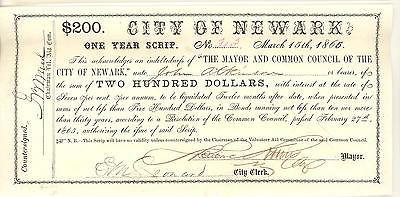 $200. CITY OF NEWARK.
ONE YEAR SCRIP. No. March 15th, 1865.
This acknowledges an indebtedness of "THE MAYOR AND COMMON COUNCIL OF THE
CITY OF NEWARK," unto John Atkinson or bearer, of
the sum of TWO HUNDRED DOLLARS, with interest at the rate of
Seven per cent. per annum, to be funded Twelve months after date, when presented in
sums of not less than Five Hundred Dollars, in Bonds running not less than ten nor more
than thirty years, according to a Resolution of the Common Council, passed February 27th,
1865, authorizing the issue of said Scrip.
N. B.—This Scrip will have no validity unless countersigned by the Chairman of the Volunteer Aid Committee of the said Common Council.
Mayor.
City Clerk.
Countersigned,
Chairman Vol. Aid Com.